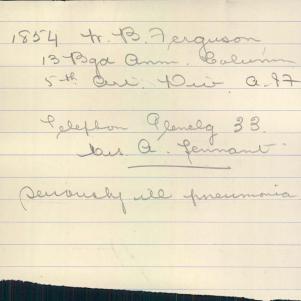 1854 W. B. Ferguson
13 Bgd Amm. Column
5th Aust. Div. A.I.F.
Telephon Glenelg 33.
Mrs A. Tennant
Seriously ill pneumonia